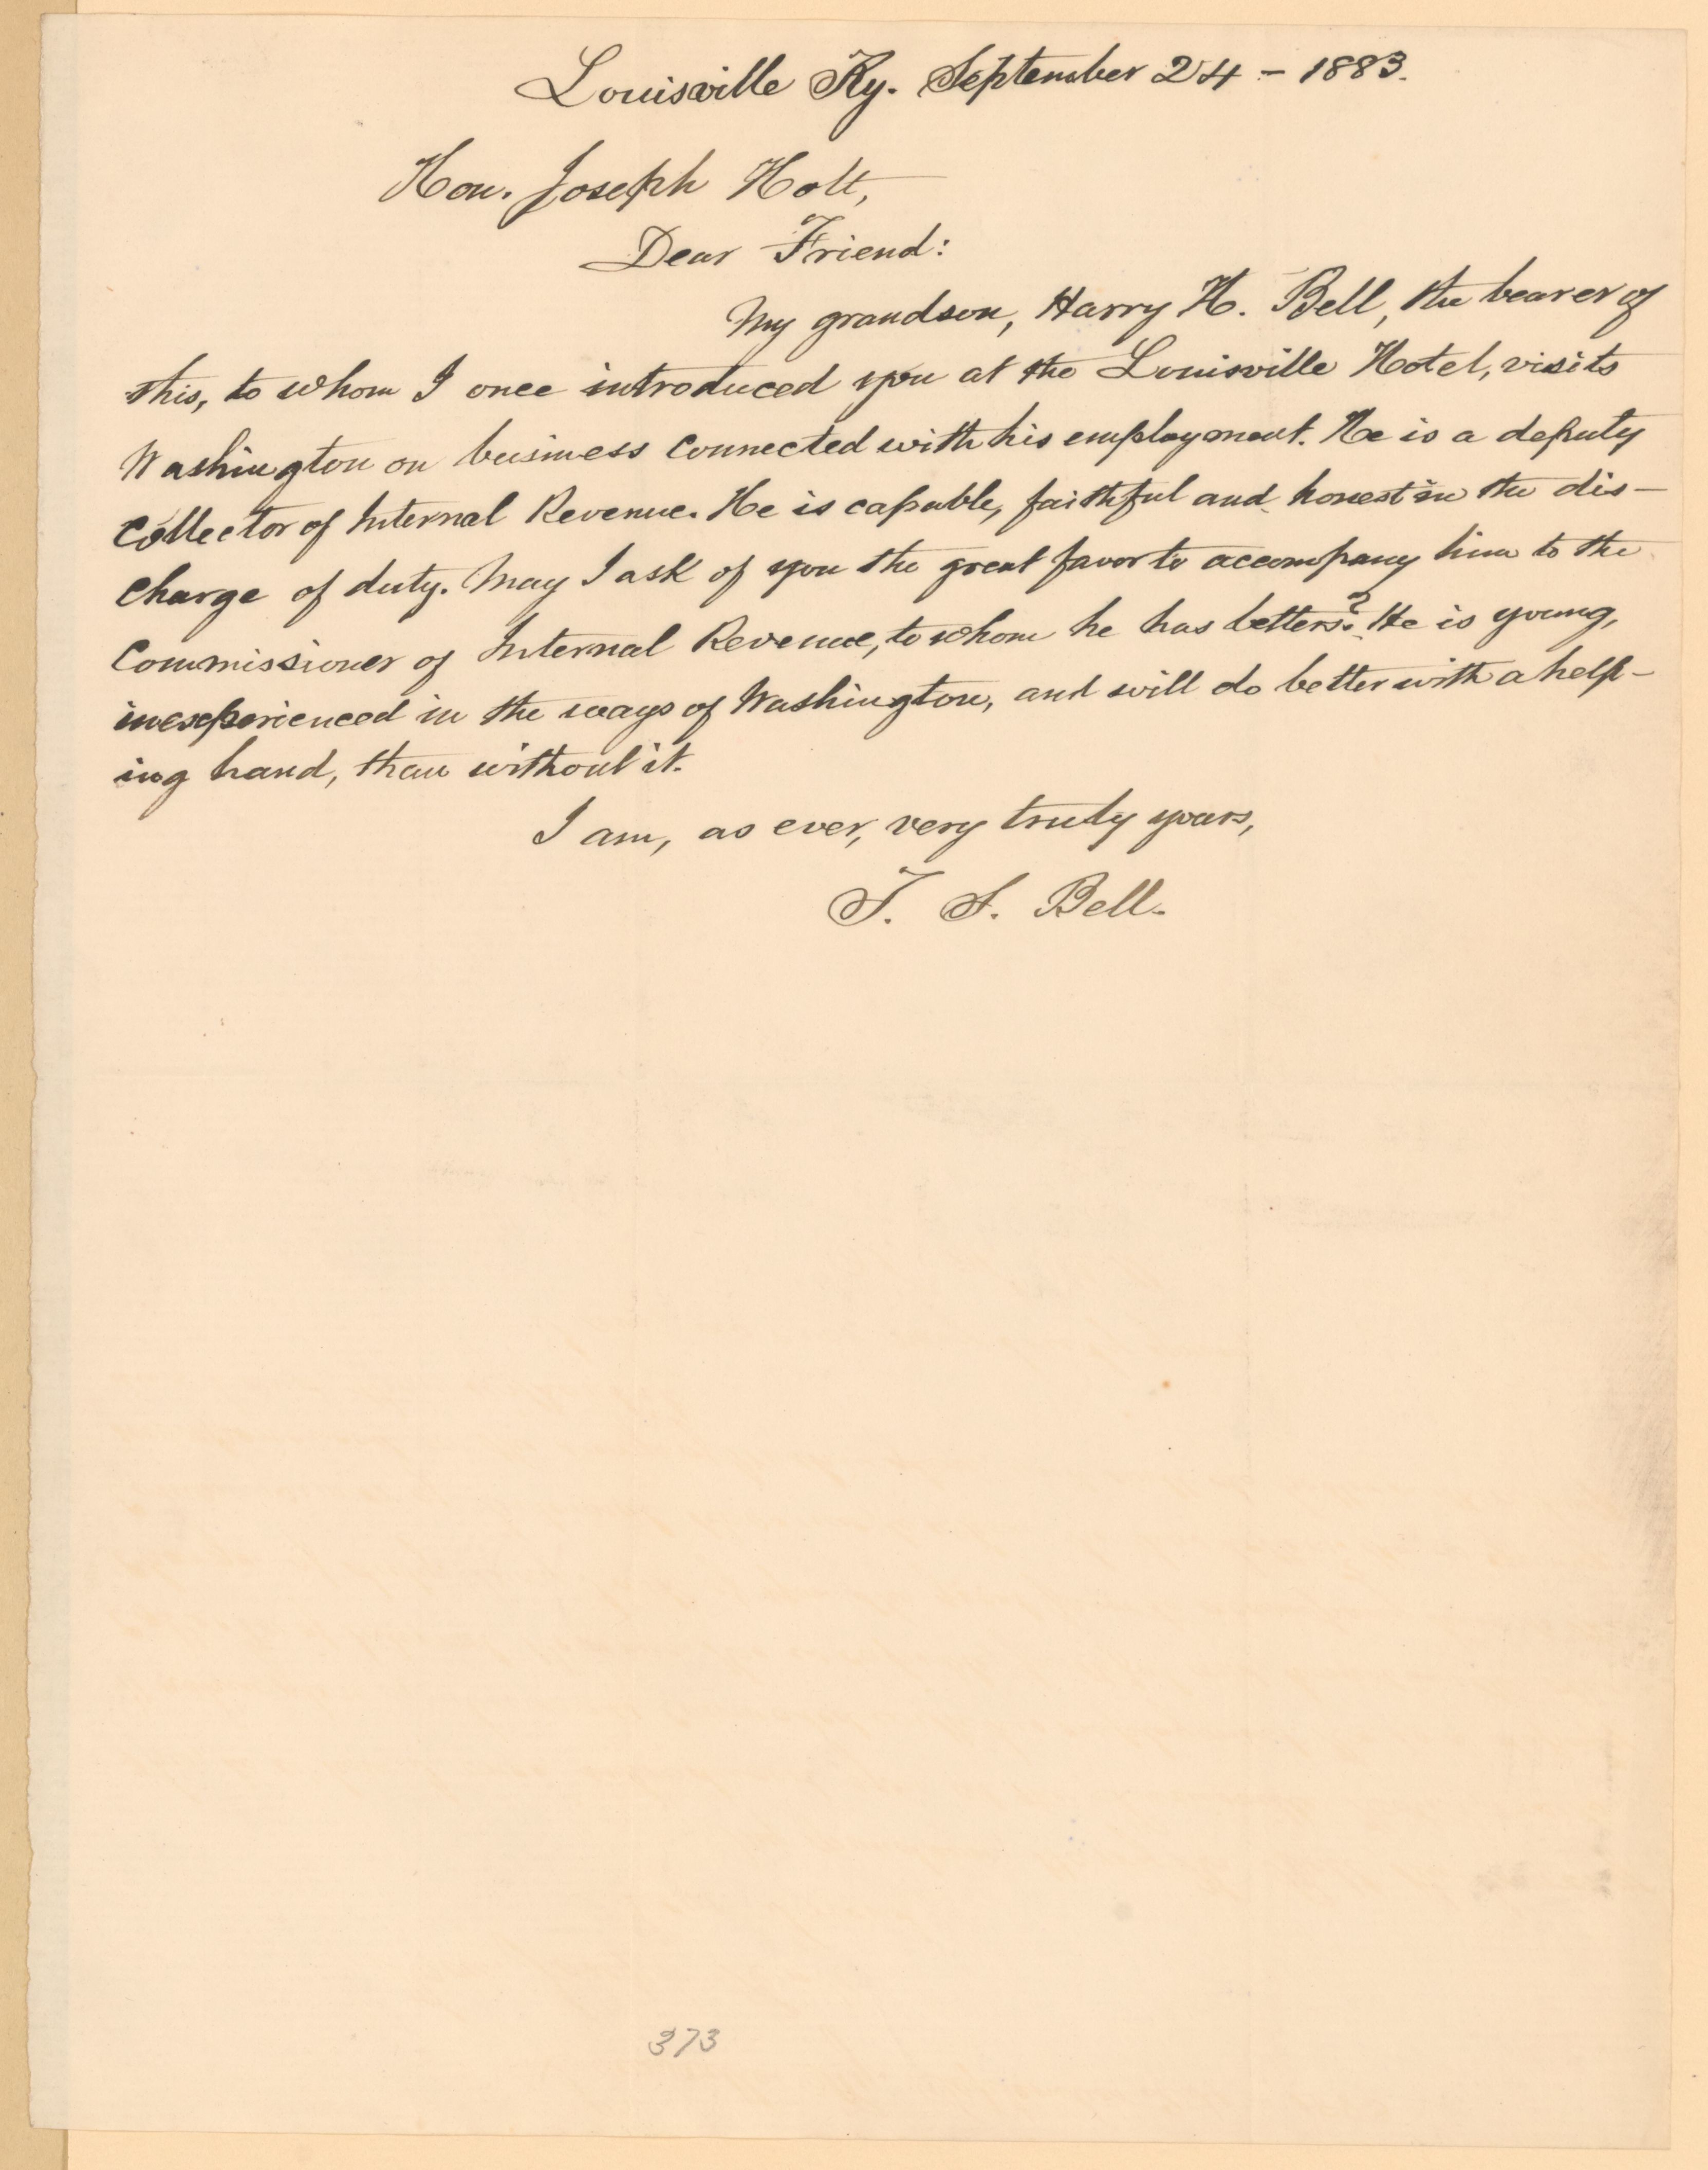 Louisville Ky. September 24 - 1883.
Hon. Joseph Holt,
Dear Friend:
My grandson, Harry H. Bell, the bearer of
this, to whom I once introduced you at the Louisville Hotel, visits
Washington on business connected with his employment. He is a deputy
Collector of Internal Revenue. He is capable, faithful and honest in the dis-
charge of duty. May I ask of you the great favor to accompany him to the
Commissioner of Internal Revenue, to whom he has letters? He is young,
inexperienced in the ways of Washington, and will do better with a help-
ing hand, than without it.
I am, as ever, very truly yours,
T. S. Bell.
373